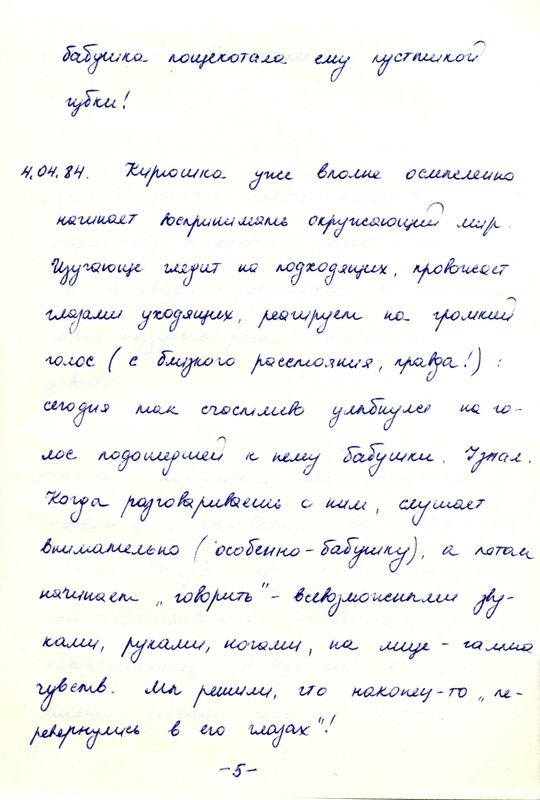 бабушка пощекотала ему пустышкой
губки!
4.04.84. Кирюшка уже вполне осмысленно
начинает воспринимать окружающий мир.
Изучающе глядит на подходящих, провожает
глазами уходящих, реагирует на громкий
голос (с близкого расстояния, правда!):
сегодня так счастливо улыбнулся на го-
лос подошедшей к нему бабушки. Узнал.
Когда разговариваешь с ним, слушает
внимательно (особенно - бабушку), а потом
начинает „говорить" - всевозможными зву-
ками, руками, ногами, на лице - гамма
чувств. Мы решили, что наконец-то „пе-
ревернулись в его глазах"!
-5-